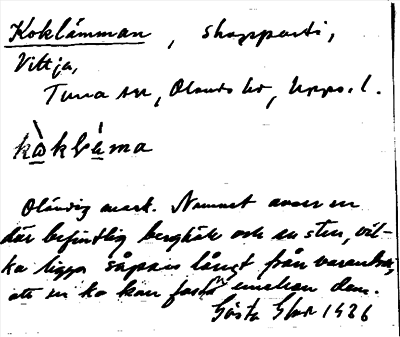 Koklämman, skogsparti,
Vittja,
Tuna sn, Olands hd, Upps. l.
kòkläma
Oländig mark. Namnet avser en
där befintlig berghäll och en sten, vil-
ka ligga såpass långt från varandra,
att en ko kan fastna emellan dem.
Gösta Ehr 1926